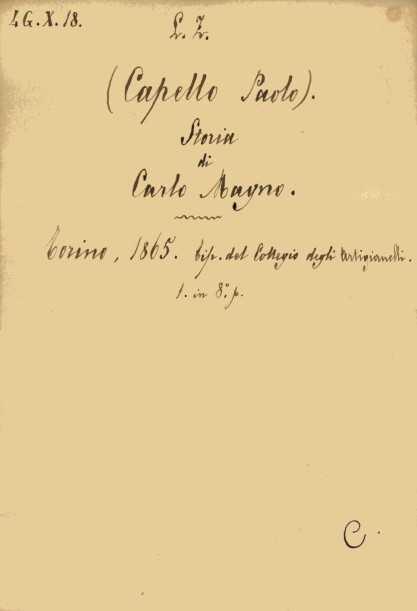 LG.X.18.
L. Z.
(Capello Paolo).
Storia
di
Carlo Magno.
Torino, 1865. Tip. del Collegio degli Artigianelli.
1. in 8.° p.
C.